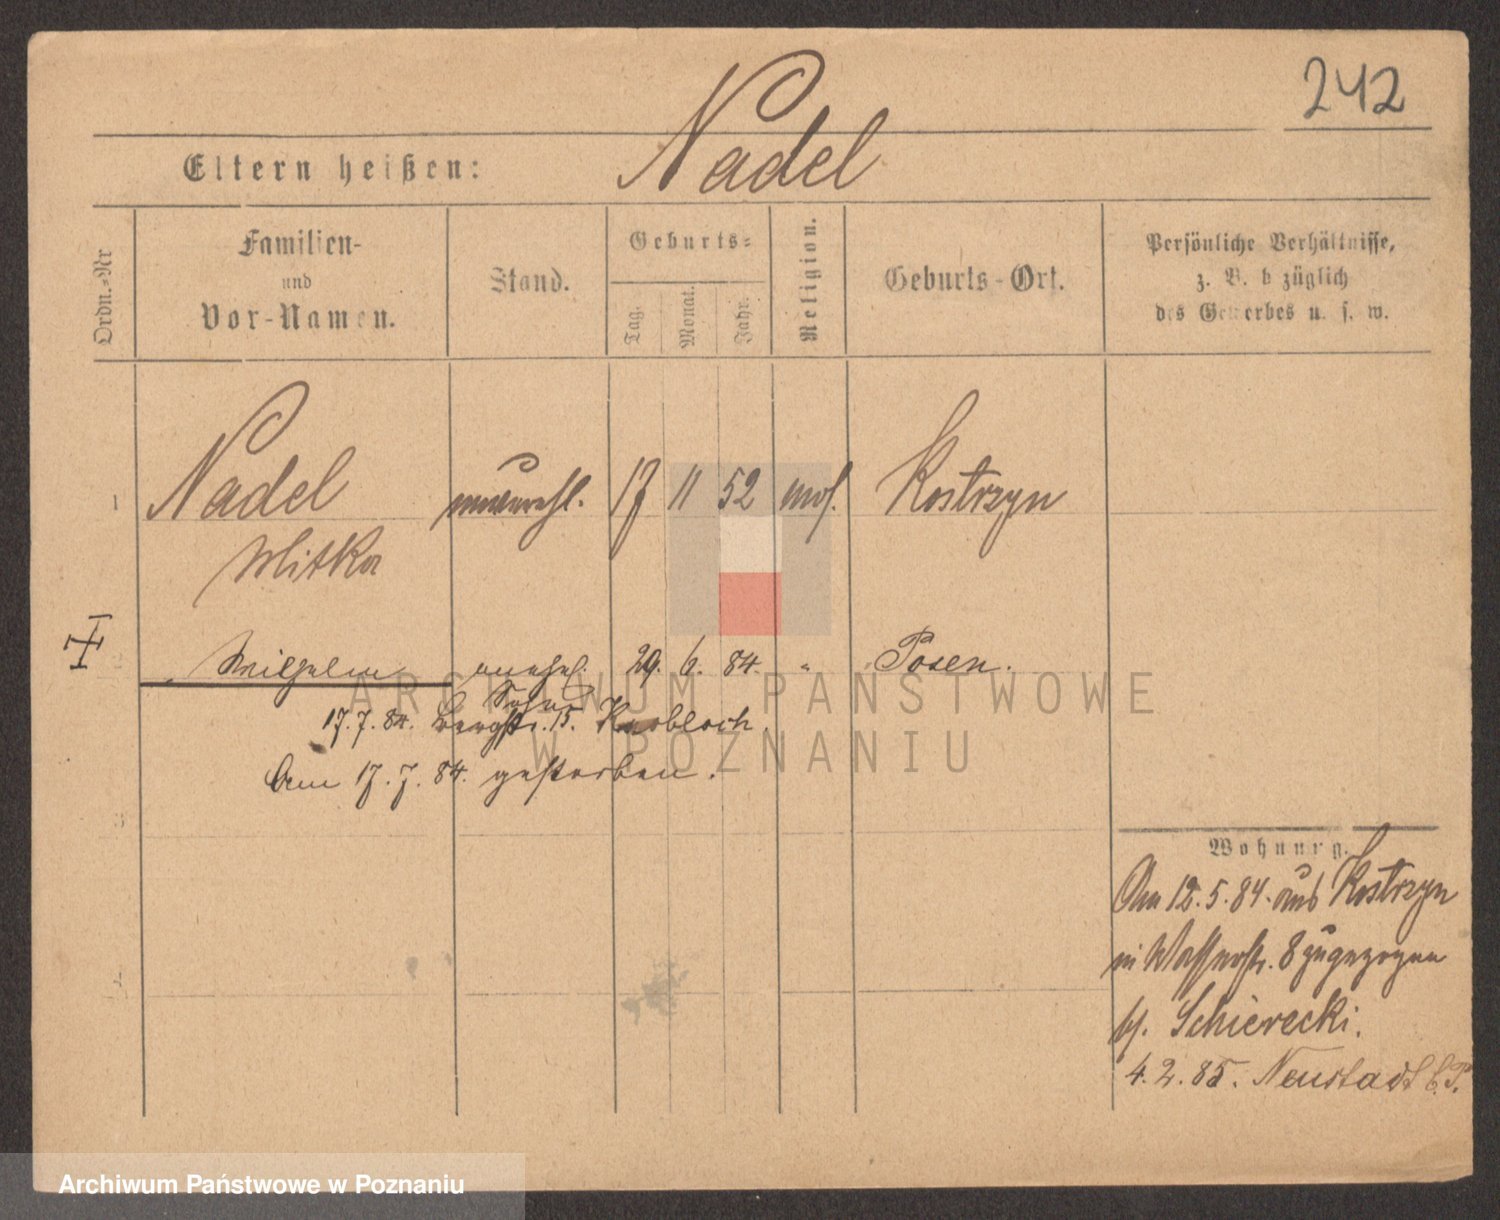 242
Eltern heißen: Nadel
Ordn.-Nr
Familien-
und
Vor-Namen.
Stand.
Geburts-
Tag.
Monat.
Jahr.
Religion.
Geburts-Ort.
Persönliche Verhältnisse,
z. B. b züglich
des Gewerbes u. s. w.
1 Nadel unverehl. 17 11 52 mos. Kostrzyn
Mitka
Wilhelm unehel. 29. 6. 84. " Posen.
Sohn
17. 7. 84. Bergstr. 15. Knobloch.
Am 17. 7. 84. gestorben.
3
Wohnung.
Am 12. 5. 84. aus Kostrzyn
in Wasserstr. 8 zugezogen
bf. Schierecki.
4. 2. 85. Neustadt b. P.
ARCHIWUM PAŃSTWOWE
W POZNANIU
Archiwum Państwowe w Poznaniu